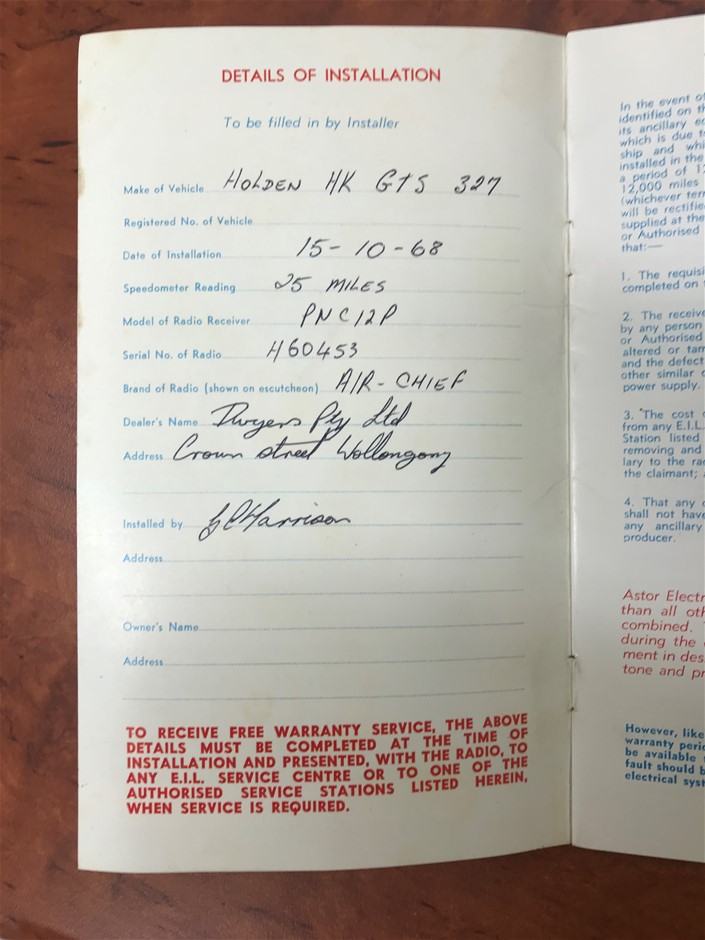 DETAILS OF INSTALLATION
To be filled in by Installer
Make of Vehicle HOLDEN HK GTS 327
Registered No. of Vehicle
Date of Installation 15-10-68
Speedometer Reading 25 MILES
Model of Radio Receiver PNC12P
Serial No. of Radio H60453
Brand of Radio (shown on escutcheon) AIR-CHIEF
Dealer's Name Dwyers Pty Ltd
Address Crown street Wollongong
Installed by Harrison
Address
Owner's Name
Address
TO RECEIVE FREE WARRANTY SERVICE, THE ABOVE
DETAILS MUST BE COMPLETED AT THE TIME OF
INSTALLATION AND PRESENTED, WITH THE RADIO, TO
ANY E.I.L. SERVICE CENTRE OR TO ONE OF THE
AUTHORISED SERVICE STATIONS LISTED HEREIN,
WHEN SERVICE IS REQUIRED.
In the event of
identified on th
its ancillary e
which is due t
ship and whi
installed in the
a period of 12
12,000 miles
(whichever ter
will be rectifie
supplied at the
or Authorised
that:—
1. The requisi
completed on
2. The receive
by any person
or Authorised
altered or tam
and the defect
other similar
power supply.
3. The cost
from any E.I.L.
Station listed
removing and
lary to the ra
the claimant;
4. That any
shall not have
any ancillary
producer.
Astor Electr
than all oth
combined.
during the
ment in des
tone and pr
However, like
warranty peri
be available
fault should b
electrical syst